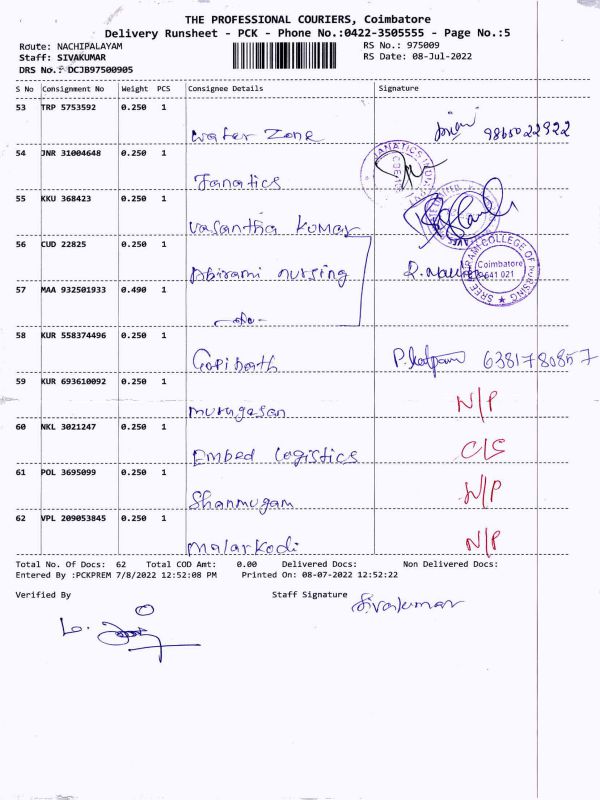 THE PROFESSIONAL COURIERS, Coimbatore
Delivery Runsheet - PCK - Phone No.:0422-3505555 - Page No.:5
Route: NACHIPALAYAM RS No.: 975009
Staff: SIVAKUMAR RS Date: 08-Jul-2022
DRS No.: DCJB97500905
S No Consignment No Weight PCS Consignee Details Signature
53 TRP 5753592 0.250 1
Water Zone 9865022922
54 JNR 31004648 0.250 1
Fanatics
55 KKU 368423 0.250 1
Vasantha Kumar
56 CUD 22825 0.250 1
Abirami nursing R.
SREE ABIRAMI COLLEGE OF NURSING
Coimbatore
641 021
57 MAA 932501933 0.490 1
-do-
58 KUR 558374496 0.250 1
Gopinath P. 6381780857
59 KUR 693610092 0.250 1
Murugesan N/P
60 NKL 3021247 0.250 1
Embed Logistics C/S
61 POL 3695099 0.250 1
Shanmugam N/P
62 VPL 209053845 0.250 1
Malarkodi N/P
Total No. Of Docs: 62 Total COD Amt: 0.00 Delivered Docs: Non Delivered Docs:
Entered By :PCKPREM 7/8/2022 12:52:08 PM Printed On: 08-07-2022 12:52:22
Verified By Staff Signature Sivakumar